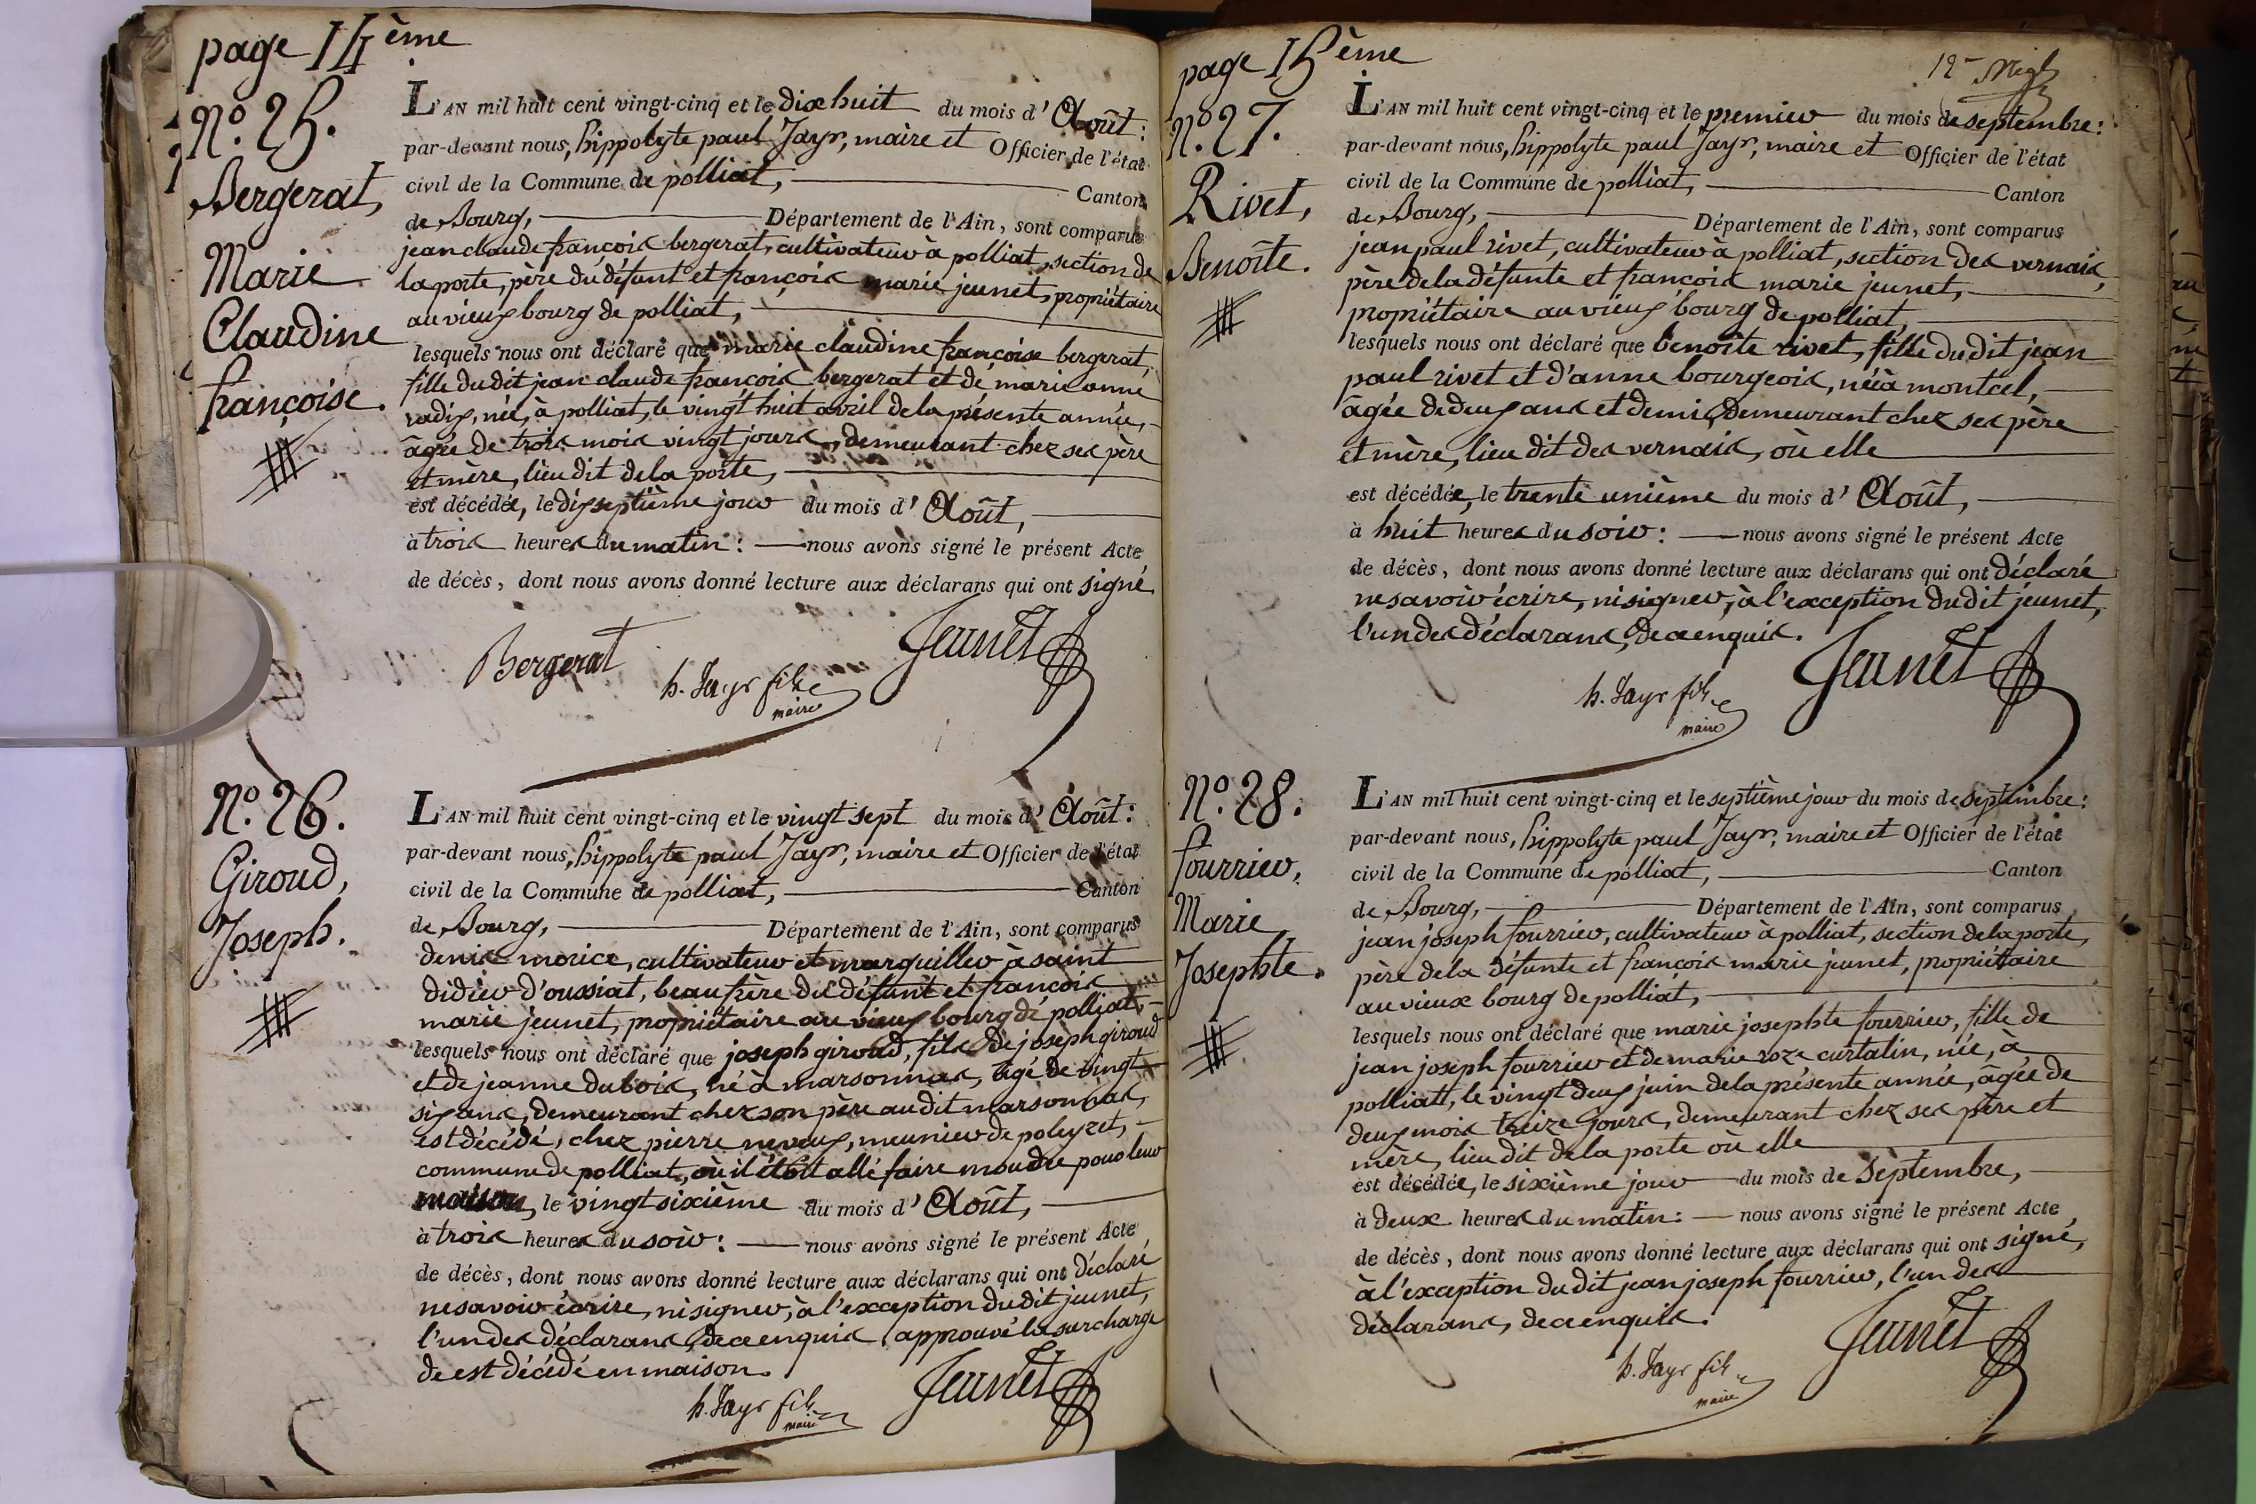 page 14ème
N.º 25.
Bergerat,
Marie
Claudine
françoise.
L'AN mil huit cent vingt-cinq et le dix huit du mois d' Août :
par-devant nous, hippolyte paul Jayr, maire et Officier de l'état
civil de la Commune de polliat, Canton
de Bourg, Département de l'Ain, sont comparus
jean claude françois bergerat, cultivateur à polliat, section de
la porte, père du défunt et françois marie jeunet, propriétaire
au vieux bourg de polliat,
lesquels nous ont déclaré que marie claudine françoise bergerat,
fille du dit jean claude françois bergerat et de marie anne
radix, née, à polliat, le vingt huit avril de la présente année,
âgée de trois mois vingt jours, demeurant chez ses père
et mère, lieu dit de la porte,
est décédée, le dixseptième jour du mois d' Août,
à trois heures du matin : nous avons signé le présent Acte
de décès, dont nous avons donné lecture aux déclarans qui ont signé
Bergerat
h. Jayr fils
maire
Jeunet
N.º 26.
Giroud,
Joseph.
L'AN mil huit cent vingt-cinq et le vingt sept du mois d' Août :
par-devant nous, hippolyte paul Jayr, maire et Officier de l'état
civil de la Commune de polliat, Canton
de Bourg, Département de l'Ain, sont comparus
denis morice, cultivateur et marguillier à saint
didier d'oussiat, beaufrère du défunt et françois
marie jeunet, propriétaire au vieux bourg de polliat,
lesquels nous ont déclaré que joseph giroud, fils de joseph giroud
et de jeanne dubois, né à marsonnas, âgé de vingt
six ans, demeurant chez son père au dit marsonnas,
est décédé, chez pierre neveux, meunier de poleyzet,
commune de polliat, où il étoit allé faire moudre pour leur
maison, le vingt sixième du mois d' Août,
à trois heures du soir : nous avons signé le présent Acte
de décès, dont nous avons donné lecture aux déclarans qui ont déclaré
ne savoir écrire, ni signer, à l'exception du dit jeunet,
l'un des déclarans, de ce enquis. approuvé la surcharge
de est décédé en maison.
h. Jayr fils
maire
Jeunet
page 15ème
12
N.º 27.
Rivet,
Benoîte.
L'AN mil huit cent vingt-cinq et le premier du mois de septembre :
par-devant nous, hippolyte paul Jayr, maire et Officier de l'état
civil de la Commune de polliat, Canton
de Bourg, Département de l'Ain, sont comparus
jean paul rivet, cultivateur à polliat, section des vernais,
père de la défunte et françois marie jeunet,
propriétaire au vieux bourg de polliat,
lesquels nous ont déclaré que benoîte rivet, fille du dit jean
paul rivet et d'anne bourgeois, née à montcel,
âgée de deux ans et demi, demeurant chez ses père
et mère, lieu dit des vernais, où elle
est décédée, le trente unième du mois d' Août,
à huit heures du soir : nous avons signé le présent Acte
de décès, dont nous avons donné lecture aux déclarans qui ont déclaré
ne savoir écrire, ni signer, à l'exception du dit jeunet,
l'un des déclarans, de ce enquis.
h. Jayr fils
maire
Jeunet
N.º 28.
fourrier,
Marie
Josephte.
L'AN mil huit cent vingt-cinq et le septième jour du mois de septembre :
par-devant nous, hippolyte paul Jayr, maire et Officier de l'état
civil de la Commune de polliat, Canton
de Bourg, Département de l'Ain, sont comparus
jean joseph fourrier, cultivateur à polliat, section de la porte,
père de la défunte et françois marie jeunet, propriétaire
au vieux bourg de polliat,
lesquels nous ont déclaré que marie josephte fourrier, fille de
jean joseph fourrier et de marie roze curtalin, née, à
polliatt, le vingt deux juin de la présente année, âgée de
deux mois treize jours, demeurant chez ses père et
mère, lieu dit de la porte où elle
est décédée, le sixième jour du mois de septembre,
à deux heures du matin : nous avons signé le présent Acte
de décès, dont nous avons donné lecture aux déclarans qui ont signé,
à l'exception du dit jean joseph fourrier, l'un des
déclarans, de ce enquis.
h. Jayr fils
maire
Jeunet